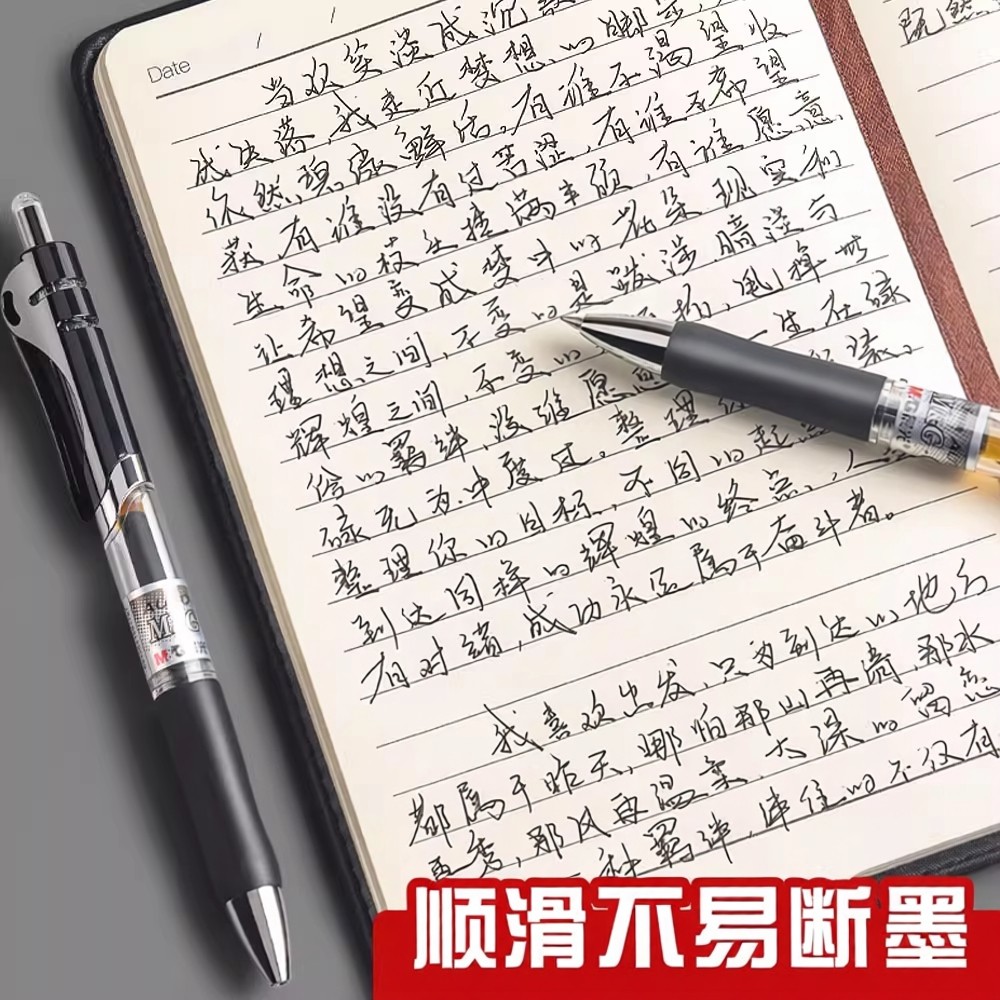 Date
当欢笑淡成沉默,
成失落,我走近梦想的脚步,
依然稳微鲜活,有谁不渴望收
获,有谁没有过苦涩,有谁不希望
生命的枝头挂满丰硕,有谁愿意
让希望变成梦中的花朵。现实和
理想之间,不变的是跋涉,暗淡与
辉煌之间,不变的
给的羁绊,没谁愿意
一生在碌
碌无为中度过。整理
整理你的目标,不同的起
到达同样的辉煌的终点。人
有对绪,成功永远属于奋斗者。
我喜欢出发,只为到达的地方
都属于昨天,哪怕那山再清,那水
再秀,那风再温柔,太深的留恋
一种羁绊,绊住的不仅有
既然
M&G
AG
M
G
顺滑不易断墨